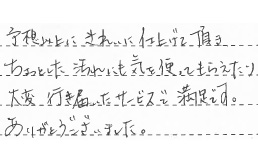 予想以上にきれいに仕上げて頂き
ちょっとした汚れにも気を使ってもらえたり
大変行き届いたサービスで満足です。
ありがとうございました。